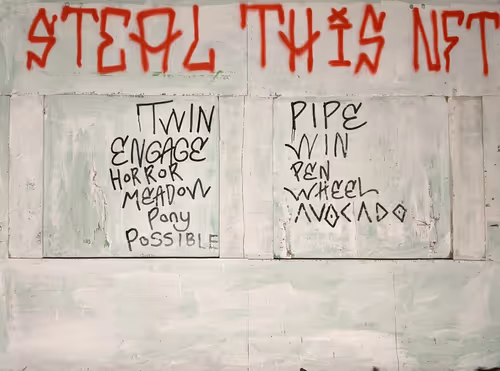 STEAL THIS NFT
TWIN
ENGAGE
HORROR
MEADOW
Pony
POSSIBLE
PIPE
WIN
PEN
WHEEL
AVOCADO